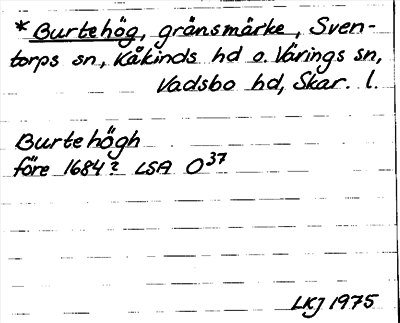 *Burtehög, gränsmärke, Sven-
torps sn, Kåkinds hd o. Värings sn,
Vadsbo hd, Skar. l.
Burtehögh
före 1684? LSA O³⁷
LKJ 1975